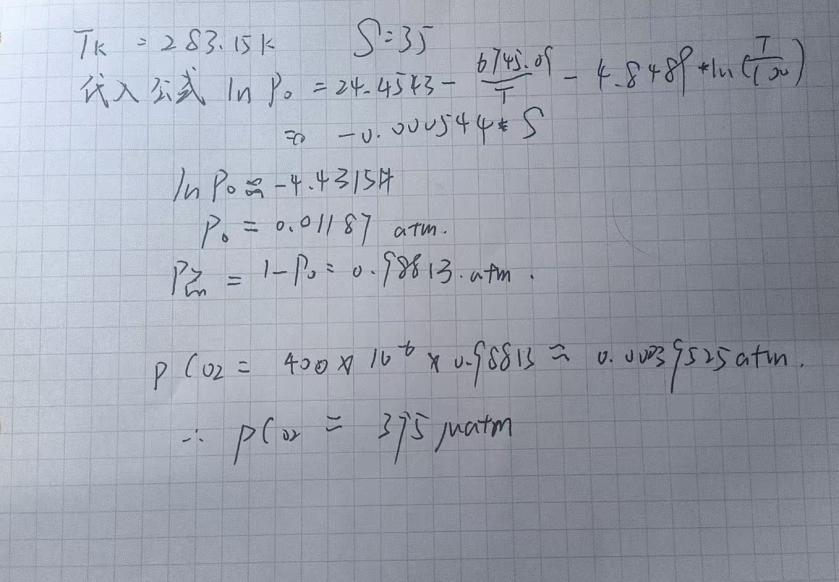 Tk = 283.15k S=35
代入公式 ln P₀ = 24.4543 - 6745.09/T - 4.8489*ln(T/100)
⇒ -0.000544*S
ln P₀ ≈ -4.4315
P₀ = 0.01187 atm.
P = 1-P₀ = 0.98813.atm.
pCO₂ = 400×10⁻⁶×0.98813 ≈ 0.0039525atm.
∴ pCO₂ = 395 μatm